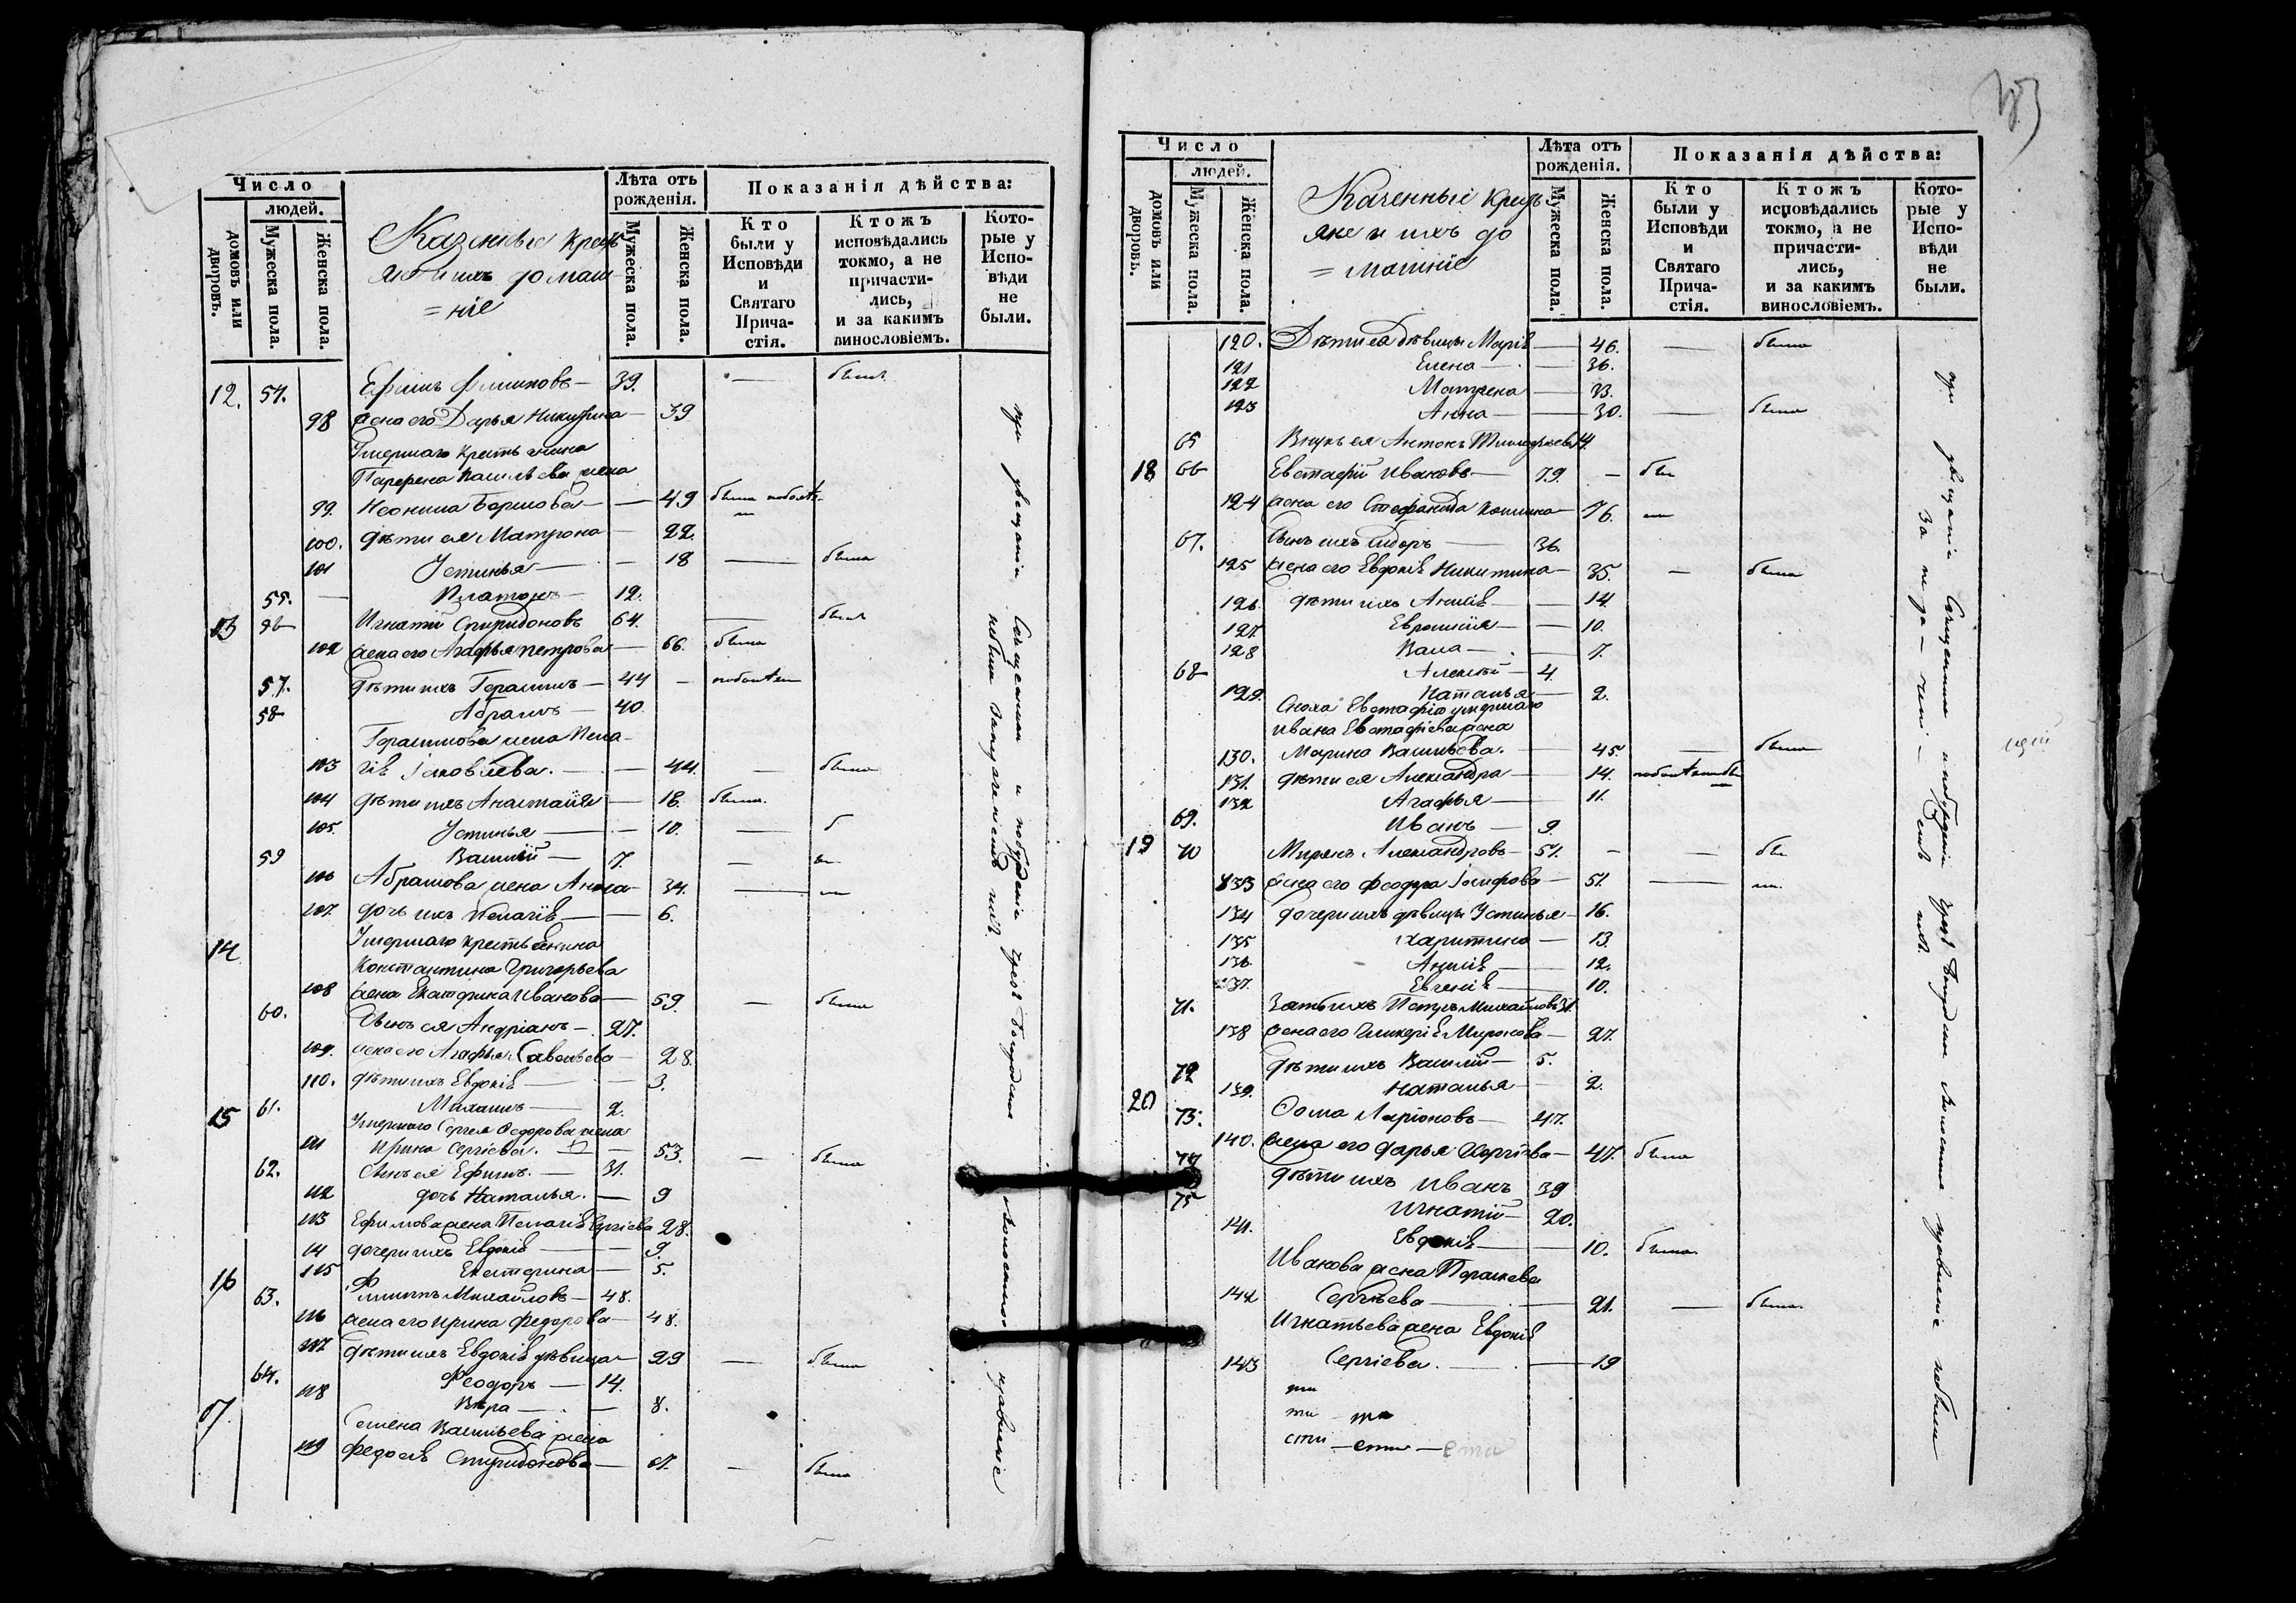 Число
людей.
домовъ или дворовъ.
Мужеска пола.
Женска пола.
Казенные кресть
яне и ихъ домаш
=ніе
Лѣта отъ рожденія.
Мужеска пола.
Женска пола.
Показанія дѣйства:
Кто были у Исповѣди и Святаго Прича-стія.
Ктожъ исповѣдались токмо, а не причасти-лись, и за какимъ винословіемъ.
Кото-рые у Испо-вѣди не были.
12. 54. Ефимъ Филиповъ — 39. — былъ
98 жена его Дарья Никитина — 39
Умершаго крестьянина
Парфена Васильева жена
99. Неонила — 49 была
100. дѣти ея Матрона — 22.
101 Устинья — 18 — была
55. Платонъ — 12.
13 56 Игнатій Спиридоновъ 64. — былъ
102 жена его Агафья Петрова — 66. была
57. дѣти ихъ Герасимъ — 44 —
58 Абрамъ — 40.
Герасимова жена Пела-
103 гія Іаковлева. — 44. — была
104 дѣти ихъ Анастасія — 18. была.
105. Устинья — 10. — б
59 Василій — 7. —
106 Абрамова жена Анна — 34. —
107. дочь ихъ Пелагія — 6.
14 Умершаго крестьянина
Константина Григорьева
108 жена Екатерина Иванова — 59. — была
60. Сынъ ея Андріанъ — 27.
109. жена его Агафья Савельева — 28.
110. дѣти ихъ Евдокія — 3.
61. Малахъ — 2.
15 Умершаго Сергея Федорова жена
111 Ирина Сергіева. — 53. — была
62. Сынъ ея Ефимъ. — 31.
112 дочь Наталья. — 9
113 Ефимова жена Пелагія Сергіева 28.
114 дочери ихъ Евдокія — 9.
115 Екатерина — 5.
16 63. Филипъ Михайловъ — 48.
116 жена его Ирина Федорова — 48.
117 дѣти ихъ Евдокія дѣвица — 29 — была
64. Феодоръ — 14.
118 Вѣра — 8.
17. Семена Васильева жена
119 Федосія Спиридонова — 67. — была
при увѣщаніи Священника и побужденіи чрезъ
Число
людей.
домовъ или дворовъ.
Мужеска пола.
Женска пола.
Казенные кресть
яне и ихъ до
=машніе
Лѣта отъ рожденія.
Мужеска пола.
Женска пола.
Показанія дѣйства:
Кто были у Исповѣди и Святаго Прича-стія.
Ктожъ исповѣдались токмо, а не причасти-лись, и за какимъ винословіемъ.
Кото-рые у Испо-вѣди не были.
120. Дѣти ея дѣвицы Марія — 46. — была
121 Елена — 36.
122 Матрена — 33.
123 Анна — 30. — была
65 Внукъ ея Антонъ Тимофеевъ 14.
18 66 Евстафій Ивановъ — 79. — бы
124 жена его Стефанида — 76. —
67. Сынъ ихъ Сидоръ — 36.
125 жена его Евдокія Никитина — 35. — была
126. дѣти ихъ Анисія — 14.
127. Евросинія — 10.
128 Васа — 7.
68 Алексѣй — 4.
129. Наталья — 2.
Сноха Евстафія умершаго
Ивана Евстафіева жена
130. Марина Васильева. — 45 — была
131. дѣти ея Александра — 14.
132 Агафья — 11.
69. Иванъ — 9.
19 70 Миронъ Александровъ — 51. — — бы
133 жена его Феодора Іосифова — 51. —
134 дочери ихъ дѣвицы Устинья — 16.
135 Харитина — 13.
136. Анисія — 12.
137. Евгенія — 10.
71. Зять ихъ Петръ Михайловъ 31.
138 жена его Гликерія Миронова — 27.
72 дѣти ихъ Василій — 5.
139. Наталья — 2.
20 73. Ѳома Ларіоновъ — 47.
140. жена его Дарья Георгіева — 47. была
74 дѣти ихъ Иванъ 39
75 Игнатій — 20.
141. Евдокія — 10. была
Иванова жена Параскева
142 Сергѣева — 21. — была.
Игнатьева жена Евдокія
143 Сергіева. — 19
ти
ти — ти
сти — сти — сти
при увѣщаніи Священника и побужденіи чрезъ